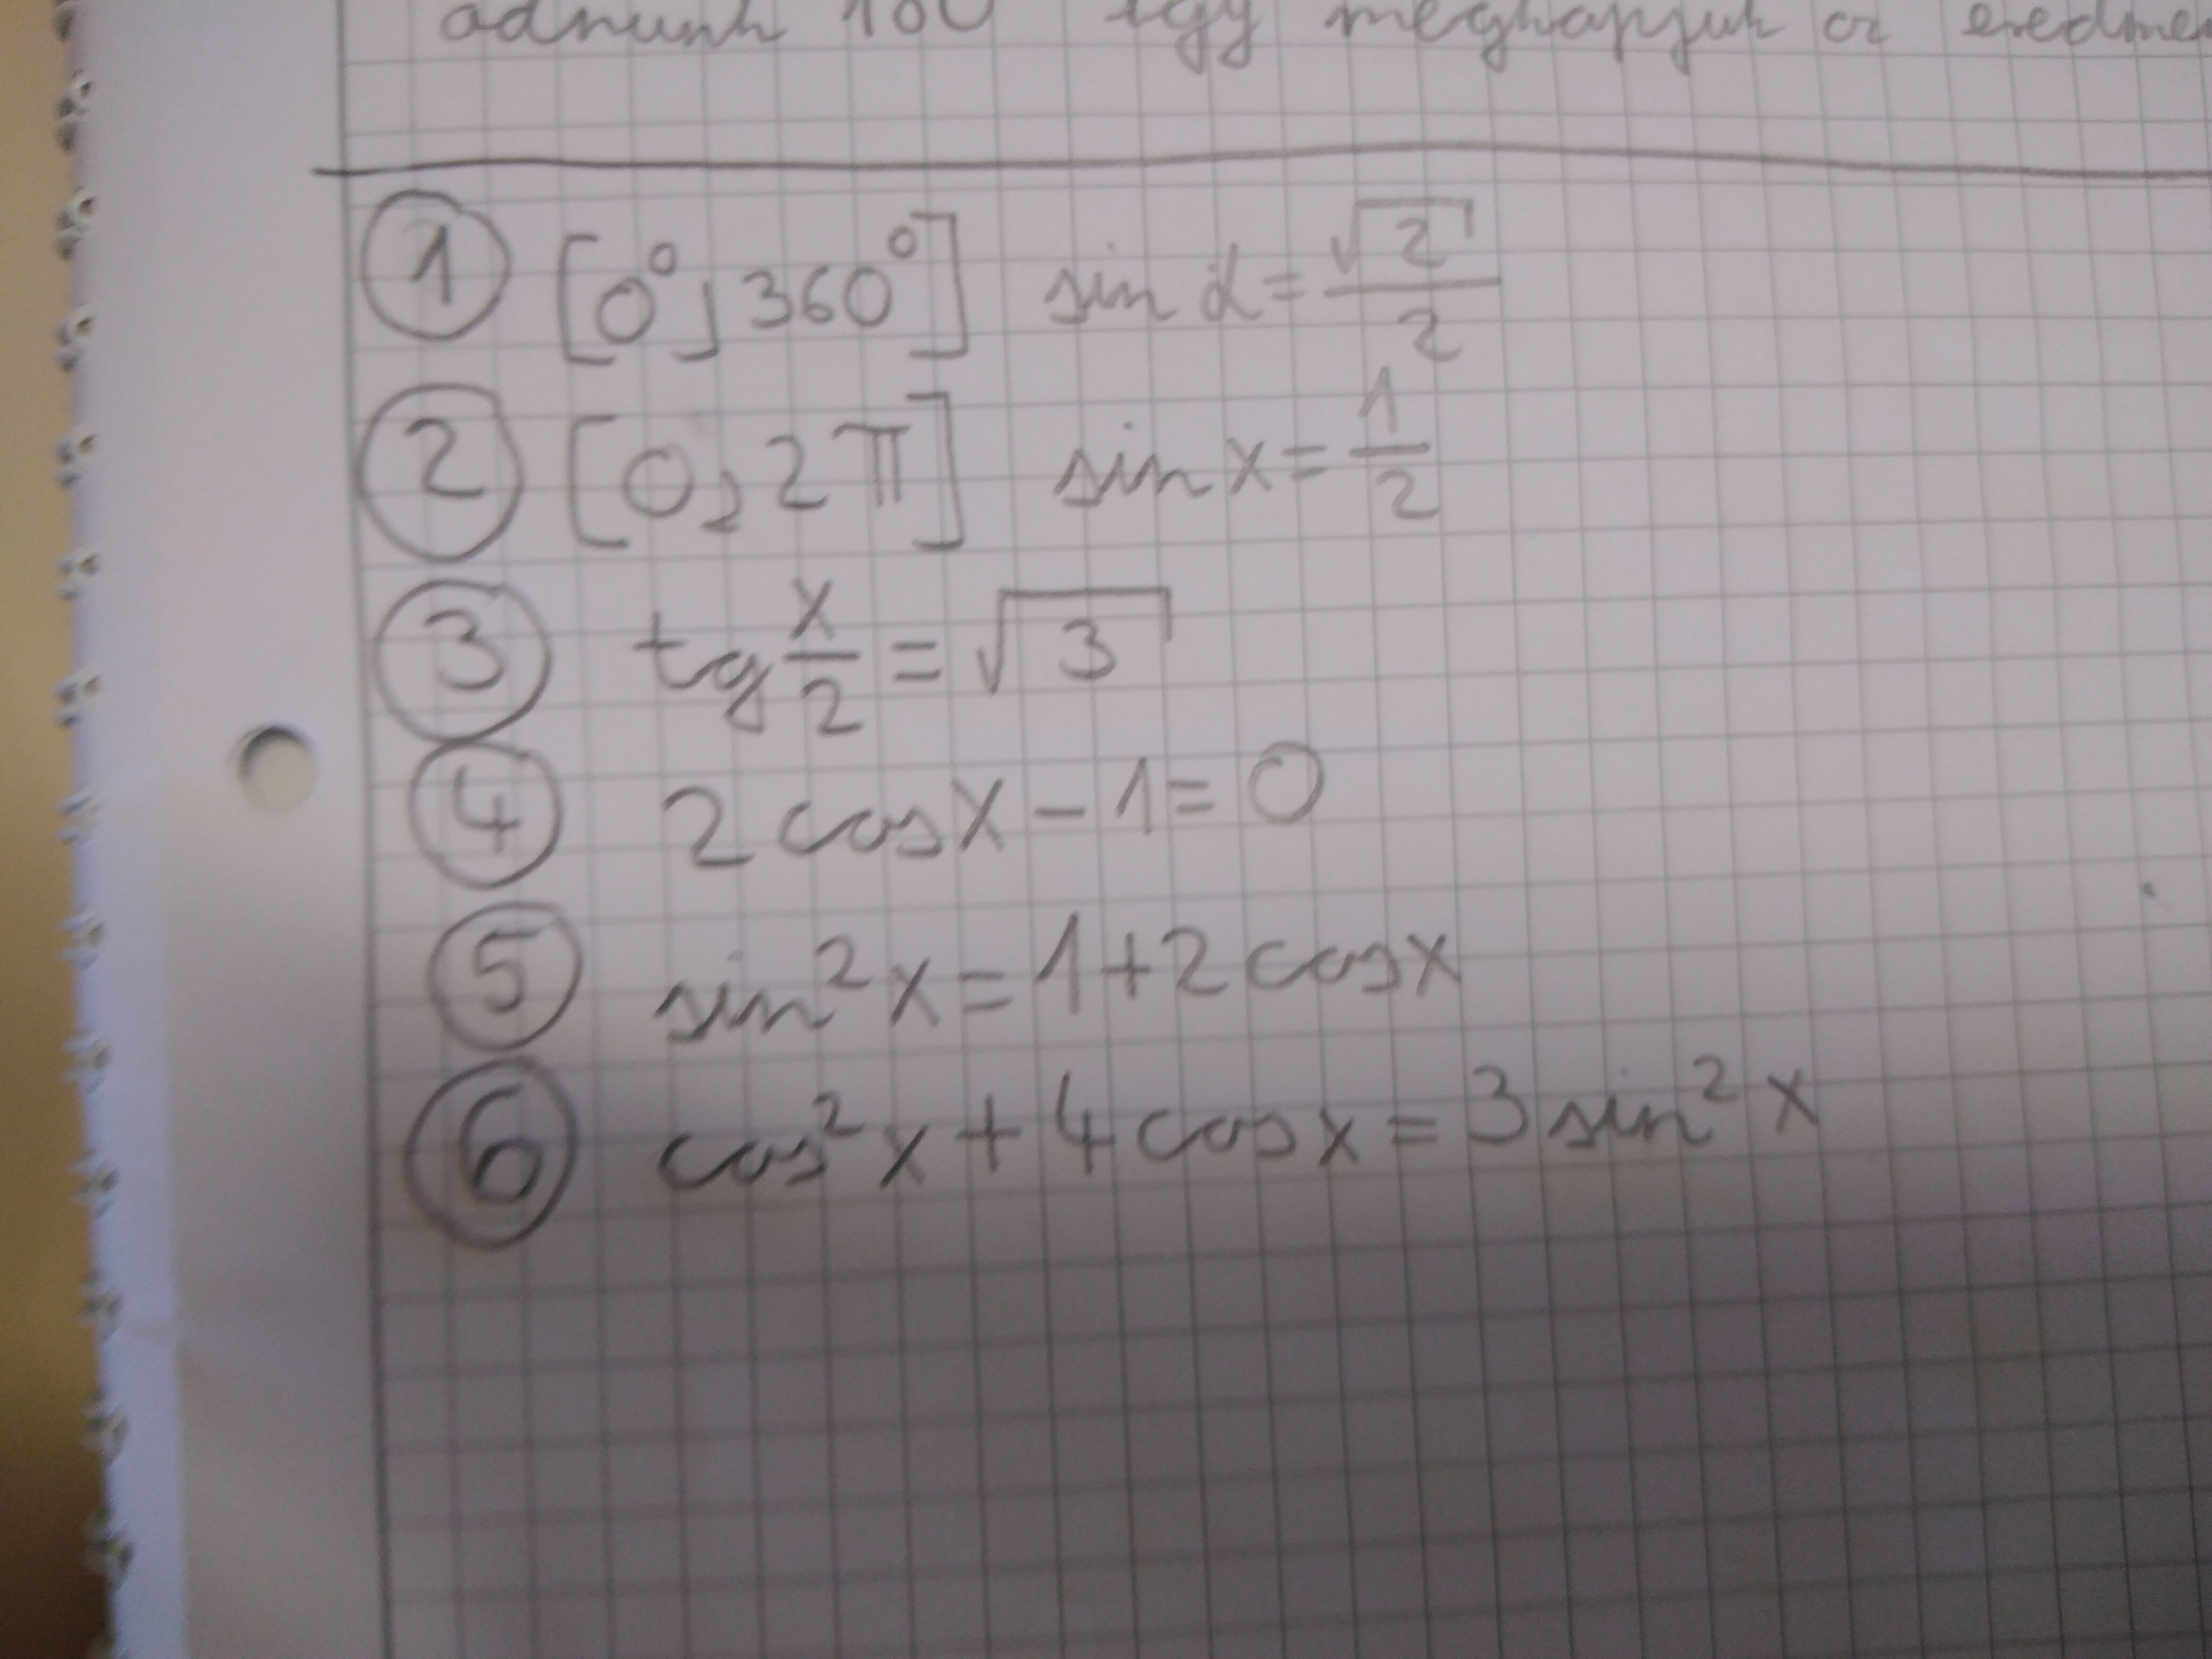 adnunk 180 így megkapjuk az
① [0°; 360°] sin α = √2/2
② [0; 2π] sin x = 1/2
③ tg x/2 = √3
④ 2 cos x - 1 = 0
⑤ sin² x = 1 + 2 cos x
⑥ cos² x + 4 cos x = 3 sin² x